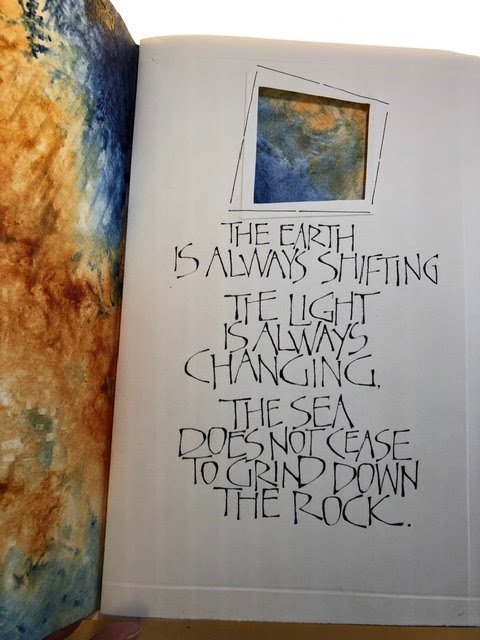 THE EARTH
IS ALWAYS SHIFTING
THE LIGHT
IS ALWAYS
CHANGING.
THE SEA
DOES NOT CEASE
TO GRIND DOWN
THE ROCK.